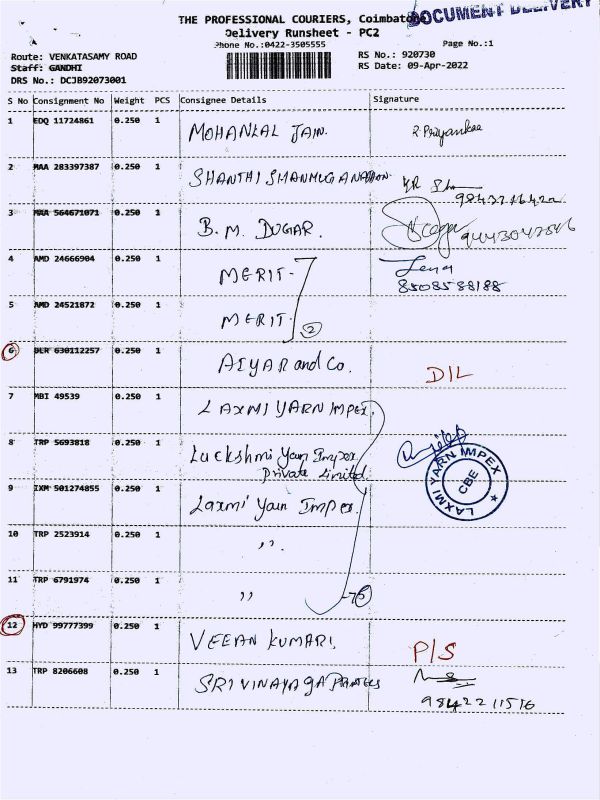 THE PROFESSIONAL COURIERS, Coimbatore
DOCUMENT DELIVERY
Delivery Runsheet - PC2
Phone No.:0422-3505555
Page No.:1
Route: VENKATASAMY ROAD
RS No.: 920730
Staff: GANDHI
RS Date: 09-Apr-2022
DRS No.: DCJB92073001
S No Consignment No Weight PCS Consignee Details Signature
1 EDQ 11724861 0.250 1 MOHANLAL JAIN. R Priyankaa
2 MAA 283397387 0.250 1 SHANTHI
3 MAA 564671071 0.250 1 B. M. DUGAR.
4 AMD 24666904 0.250 1 MERIT-
8508588188
5 AMD 24521872 0.250 1 MERIT 2
6 630112257 0.250 1 AIYAR and Co. D/L
7 MBI 49539 0.250 1 LAXMI YARN IMPEX.
8 TRP 5693818 0.250 1 Luckshmi Yarn Impex
Private Limited.
LAXMI YARN IMPEX
CBE
9 IXM 501274855 0.250 1 Laxmi Yarn Impex.
10 TRP 2523914 0.250 1 ,,
11 TRP 6791974 0.250 1 ,,
12 HYD 99777399 0.250 1 VEEAN KUMARI. P/S
13 TRP 8206608 0.250 1 SRI VINAYAGA
9842211516